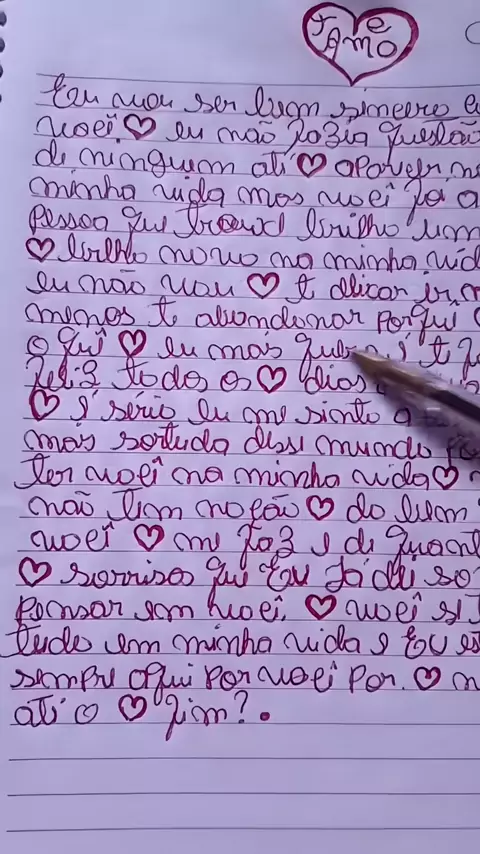 Te Amo
Eu vou ser bem sincero e
você eu não fazia questão
de ninguem até aparecer n
minha vida mas você foi a
pessoa que trouxe brilho um
brilho novo na minha vid
eu não vou te deixar ir m
menos te abandonar porque
o que eu mais é t
feliz todos os dias
é sério eu me sinto a
mais sortuda desse mundo
ter você na minha vida
não tem noção do bem
você me faz e de quant
sorrisos que Eu já dei só
pensar em você. você se
tudo em minha vida e Eu es
sempre aqui por você por. m
até o fim?.